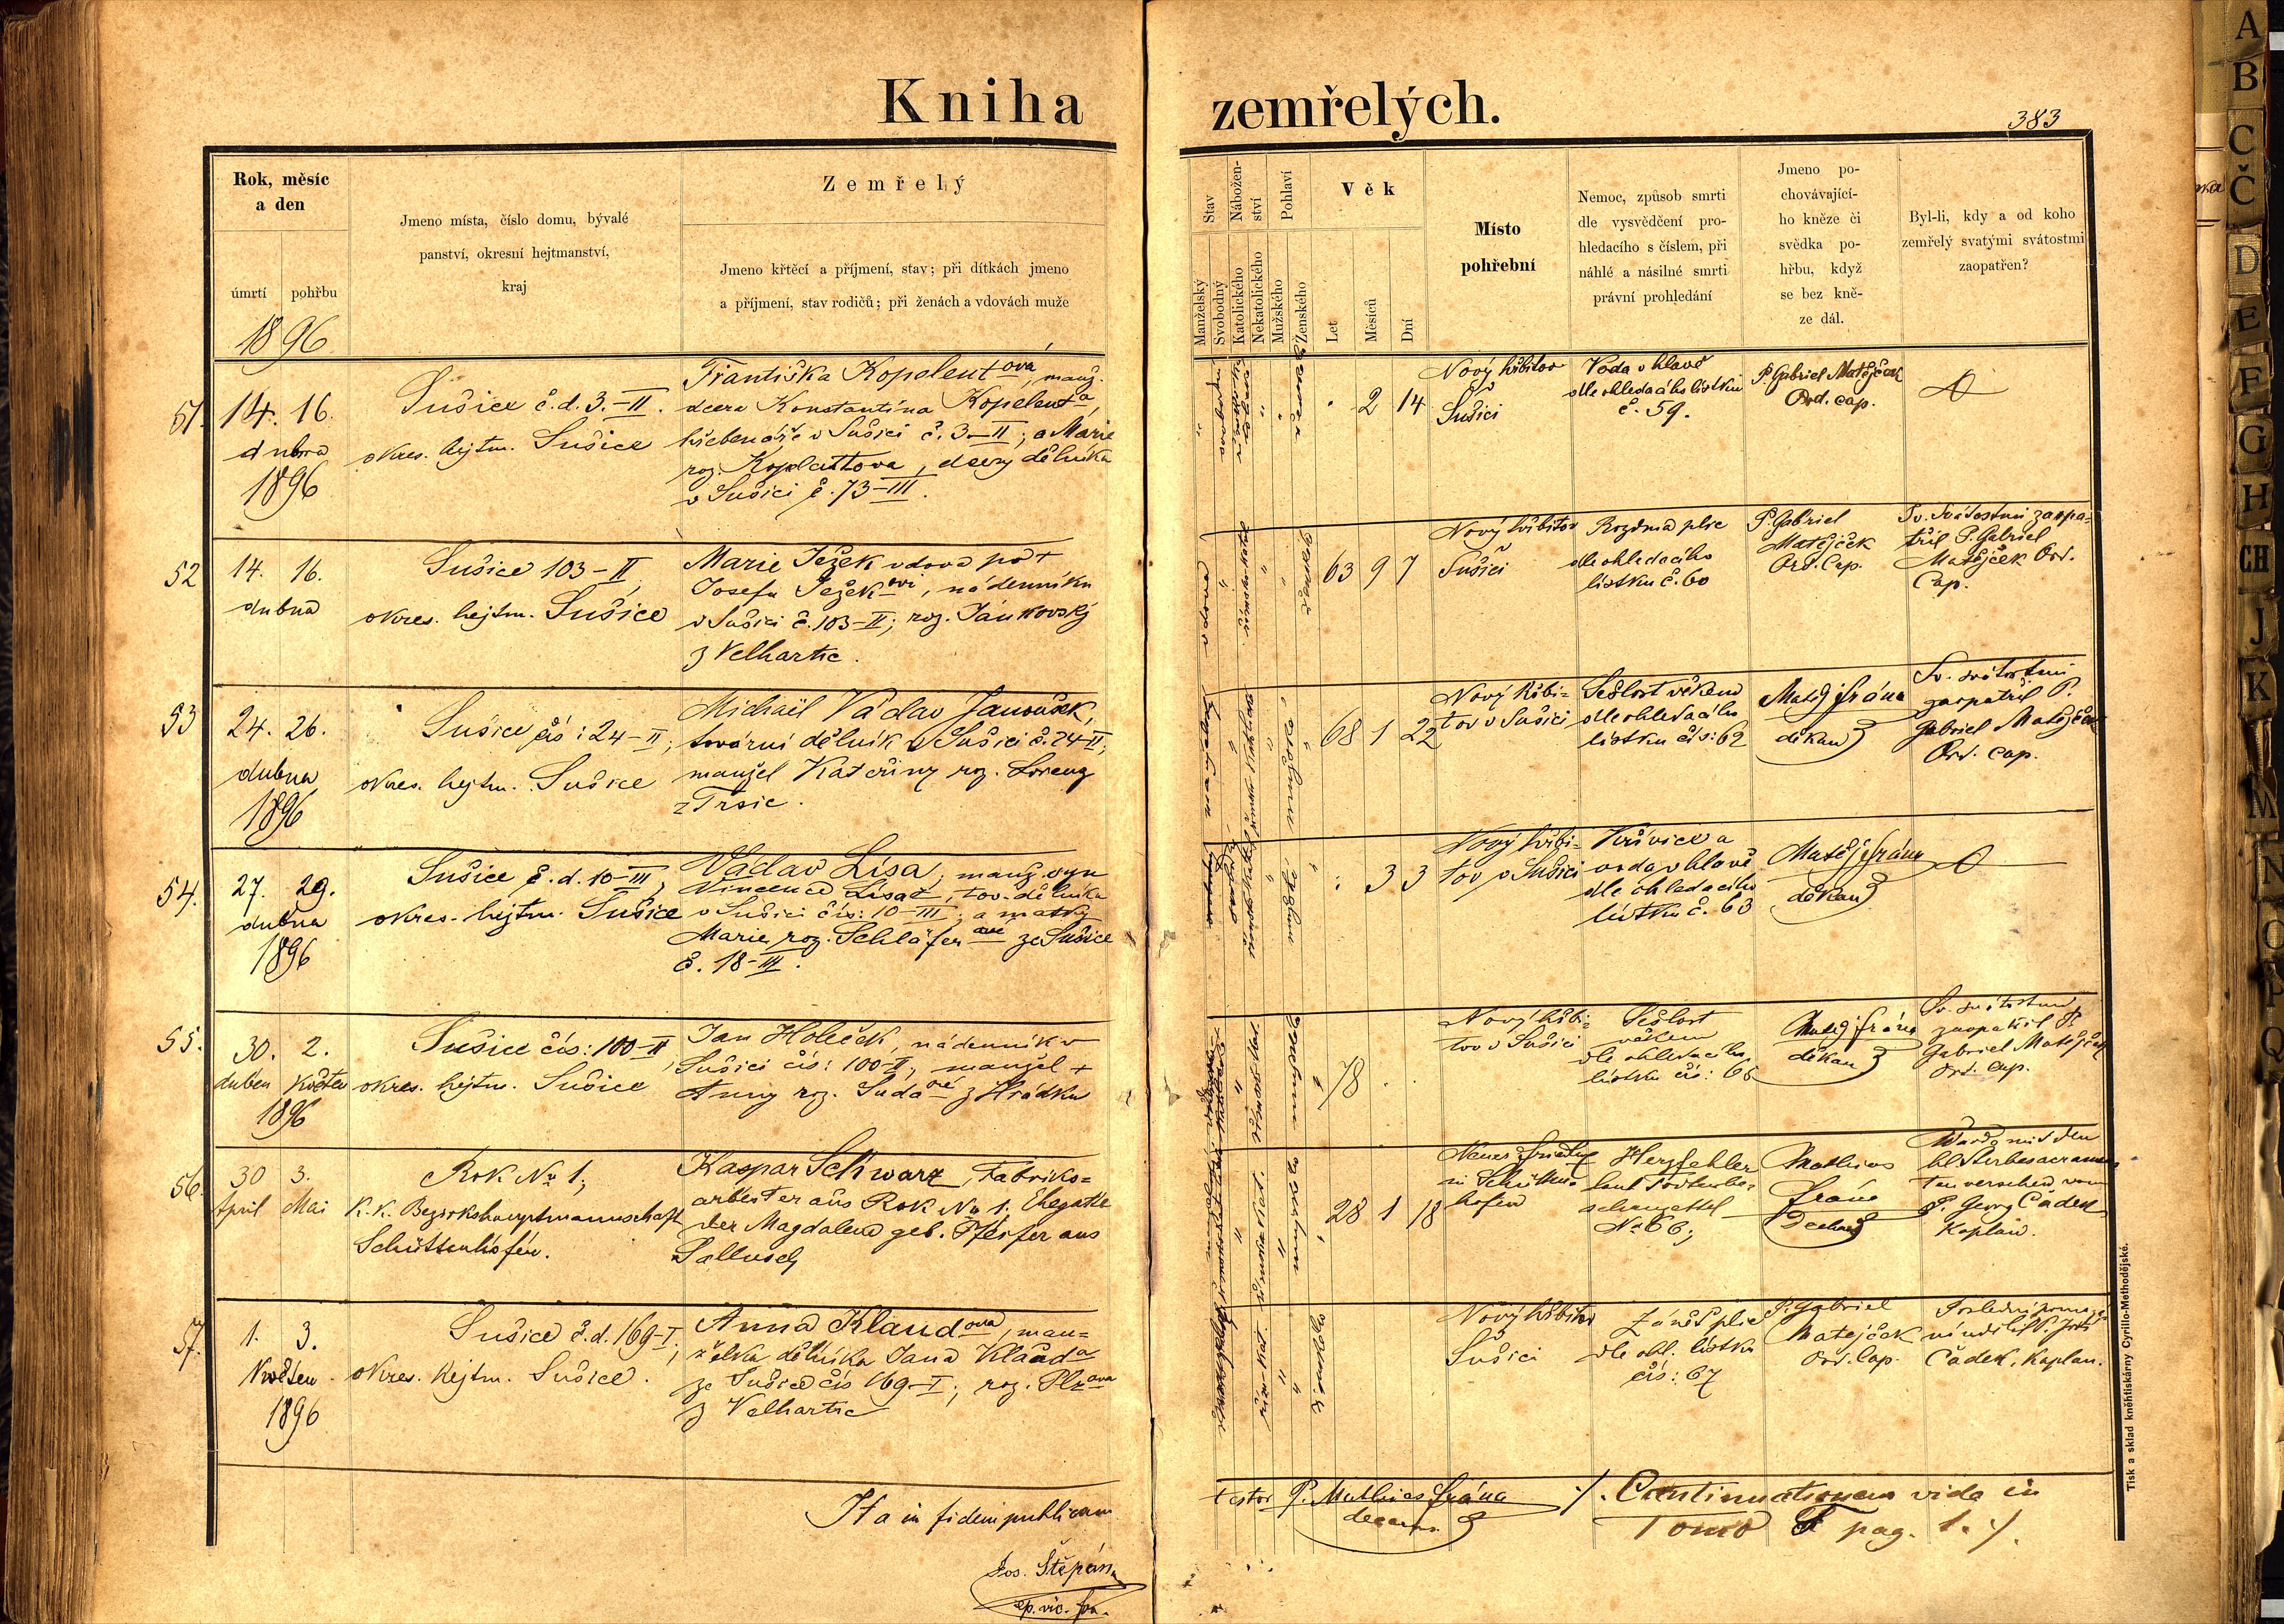 Kniha zemřelých.
383
Rok, měsíc
a den
úmrtí
pohřbu
1896
Jmeno místa, číslo domu, bývalé
panství, okresní hejtmanství,
kraj
Zemřelý
Jmeno křtěcí a příjmení, stav; při dítkách jmeno
a příjmení, stav rodičů; při ženách a vdovách muže
Stav
Manželský
Svobodný
Nábožen-
ství
Katolického
Nekatolického
Pohlaví
Mužského
Ženského
Věk
Let
Měsíců
Dní
Místo
pohřební
Nemoc, způsob smrti
dle vysvědčení pro-
hledacího s číslem, při
náhlé a násilné smrti
právní prohledání
Jmeno po-
chovávající-
ho kněze či
svědka po-
hřbu, když
se bez kně-
ze dál.
Byl-li, kdy a od koho
zemřelý svatými svátostmi
zaopatřen?
51.
14. 16.
dubna
1896
Sušice č.d. 3.-II.
okres. hejtm. Sušice
Františka Kopelentová, manž.
dcera Konstantina Kopelenta,
hřebenáře v Sušici č. 3-II; a Marie
roz. , dcery dělníka
v Sušici č. 73-III.
2 14
Nový hřbitov
Sušici
Voda v hlavě
dle ohledacího lístku
č. 59.
P. Gabriel Matějček
Ord. cap.
52
14. 16.
dubna
Sušice 103-II
okres. hejtm. Sušice
Marie Ježek vdova po †
Josefu Ježekovi, nádenníku
v Sušici č. 103-II; roz. Jánkovský
z Velhartic.
vdova
63 9 7
Nový hřbitov
Sušici
Rozedma plic
dle ohledacího
lístku č. 60
P. Gabriel
Matějček
Ord. Cap.
Sv. svátostmi zaopa-
třil P. Gabriel
Matějček Ord.
Cap.
53
24. 26.
dubna
1896
Sušice čís: 24-II;
okres. hejtm. Sušice
Michaël Václav Janoušek,
tovární dělník v Sušici č. 24-II;
manžel Kateřiny roz. Lorenz
z Trsic.
68 1 22
Nový hřbi-
tov v Sušici
Sešlost věkem
dle ohledacího
lístku čís: 62
Matěj Frána
děkan
Sv. svátostmi
zaopatřil P.
Gabriel Matějček
Ord. Cap.
54.
27. 29.
dubna
1896
Sušice č.d. 10-III,
okres. hejtm. Sušice
Václav Lísa, manž. syn
Vincence Lísa, tov. dělníka
v Sušici čís: 10-III; a matky
Marie, roz. Schläferové ze Sušice
č. 18-III.
3 3
Nový hřbi-
tov v Sušici
Křivice a
voda v hlavě
dle ohledacího
lístku č. 63
Matěj Frána
děkan
55.
30. 2.
duben květen
1896
Sušice čís: 100-II,
okres. hejtm. Sušice
Jan Holeček, nádenník v
Sušici čís: 100-II; manžel †
Anny roz. Sudaové z Hrádku
78
Nový hřbi-
tov v Sušici
Sešlost
věkem
dle ohledacího
lístku čís: 65
Matěj Frána
děkan
Sv. svátostmi
zaopatřil P.
Gabriel Matějček
Ord. Cap.
56.
30 3.
April Mai
Rok No 1;
K.K. Bezirkshauptmannschaft
Schüttenhofen.
Kaspar Schwarz, Fabriks-
arbeiter aus Rok No 1. Ehegatte
der Magdalena geb. Pfeifer aus
28 1 18
Neuer Friedhof
in Schütten-
hofen
Herzfehler
laut Todtenbe-
schauzettel
No 66;
Mathias
Frána
Dechant
Wurde mit den
hl. Sterbesacramen-
ten versehen vom
P. Georg Čadek
Kaplan.
57.
1. 3.
Květen
1896
Sušice č.d. 169-I;
okres. hejtm. Sušice.
Anna Klaudova, man-
želka dělníka Jana Klauda
ze Sušice čís 169-I; roz. Plzova
z Velhartic
Nový hřbitov
Sušici
Zánět plic
dle ohl. lístku
čís: 67
P. Gabriel
Matějček
Ord. Cap.
Poslední pomazá-
ní udílel P. Jiří
Čadek, Kaplan.
Ita in fidem publicam
testor P. Mathias Frána
decanus
Jos. Štěpán
ep. vic. for.
./. Continuationem vide in
Tomo pag. 1. ./.
Tisk a sklad kněhtiskárny Cyrillo-Methodějské.
A
B
C
Č
D
E
F
G
H
CH
J
K
M
N
O
P
Q